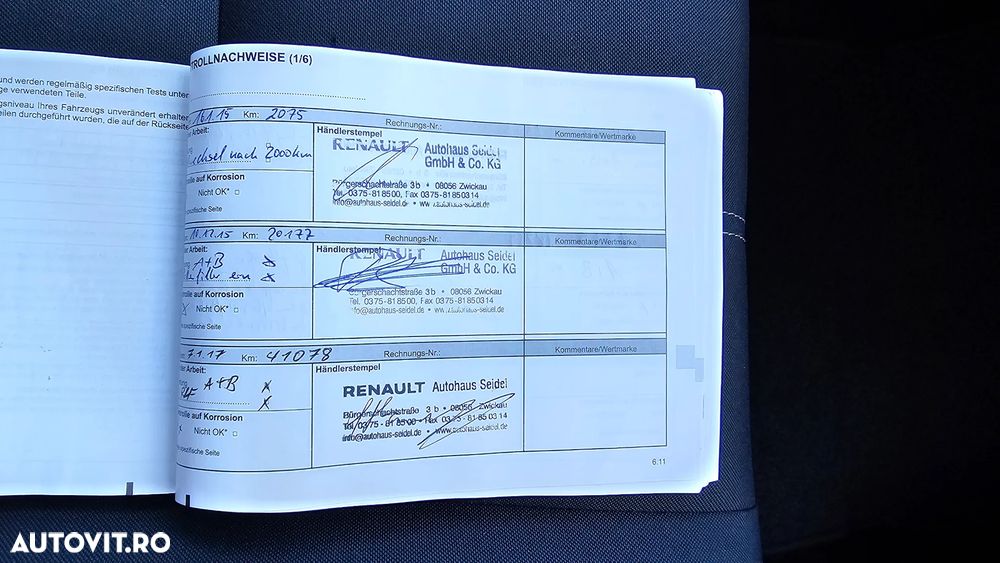 und werden regelmäßig spezifischen Tests unter
ge verwendeten Teile.
gsniveau Ihres Fahrzeugs unverändert erhalten
eilen durchgeführt wurden, die auf der Rückseite
TROLLNACHWEISE (1/6)
Km: 2075
Rechnungs-Nr.:
Kommentare/Wertmarke
er Arbeit:
Händlerstempel
chsel nach 2000km
RENAULT Autohaus Seidel
GmbH & Co. KG
rolle auf Korrosion
Nicht OK*
Bürgerschachtstraße 3 b • 08056 Zwickau
Tel. 0375-818500, Fax 0375-81850314
info@autohaus-seidel.de • www.autohaus-seidel.de
spezifische Seite
12.15 Km: 20177
Rechnungs-Nr.:
Kommentare/Wertmarke
der Arbeit:
Händlerstempel
A+B
RENAULT Autohaus Seidel
GmbH & Co. KG
rolle auf Korrosion
Nicht OK*
Bürgerschachtstraße 3 b • 08056 Zwickau
Tel. 0375-818500, Fax 0375-8185 0314
info@autohaus-seidel.de • www.autohaus-seidel.de
spezifische Seite
7.1.17 Km: 41078
Rechnungs-Nr.:
Kommentare/Wertmarke
der Arbeit:
Händlerstempel
A+B
RENAULT Autohaus Seidel
rolle auf Korrosion
Nicht OK*
Bürgerschachtstraße 3 b • 08056 Zwickau
Tel. 0375-818500 • Fax 0375-81850314
info@autohaus-seidel.de • www.autohaus-seidel.de
spezifische Seite
6.11
AUTOVIT.RO